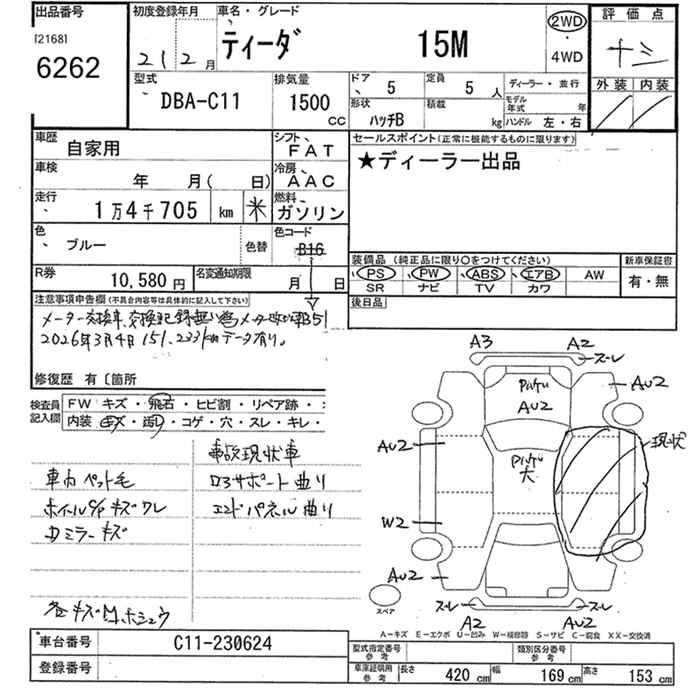 出品番号
[2168]
6262
初度登録年月
21年2月
車名・グレード
ティーダ 15M
2WD
・
4WD
評価点
外装 内装
型式
DBA-C11
排気量
1500
CC
ドア 5
定員 5人
ディーラー・並行
形状
ハッチB
積載 kg
モデル年式 年
ハンドル 左・右
車歴
自家用
シフト
FAT
車検
年 月( 日)
冷房
AAC
走行
1万4千705 km
米
燃料
ガソリン
色
ブルー
色替
色コード
B16
R券
10,580円
名変通知期限
月 日
セールスポイント(正常に機能するものに限ります)
★ディーラー出品
装備品(純正品に限り○をつけてください)
新車保証書
PS PW ABS エアB AW
有・無
SR ナビ TV カワ
後日品
注意事項申告欄(不具合内容等は具体的に記入して下さい)
メーター交換車、交換記録無い為メーター
2026年3月4日 151,233kmデータ有り。
修復歴 有〔箇所
検査員
記入欄
FW キズ・飛石・ヒビ割・リペア跡・
内装 キズ・汚れ・コゲ・穴・スレ・キレ・
事故現状車
車内ペット毛
ロアサポート曲り
ホイールC/Pキズワレ
エンドパネル曲り
ドミラーキズ
各キズ凹、ホシュウ
A3 A2
スレ
AU2
AU2
AU2
現状
大
W2
AU2
スレ
スレ
A2
AU2
スペア
A-キズ E-エクボ U-凹み W-補修跡 S-サビ C-腐食 XX-交換済
車台番号
C11-230624
登録番号
型式指定番号
参考
類別区分番号
参考
車庫証明用
参考
長さ 420 cm
幅 169 cm
高さ 153 cm